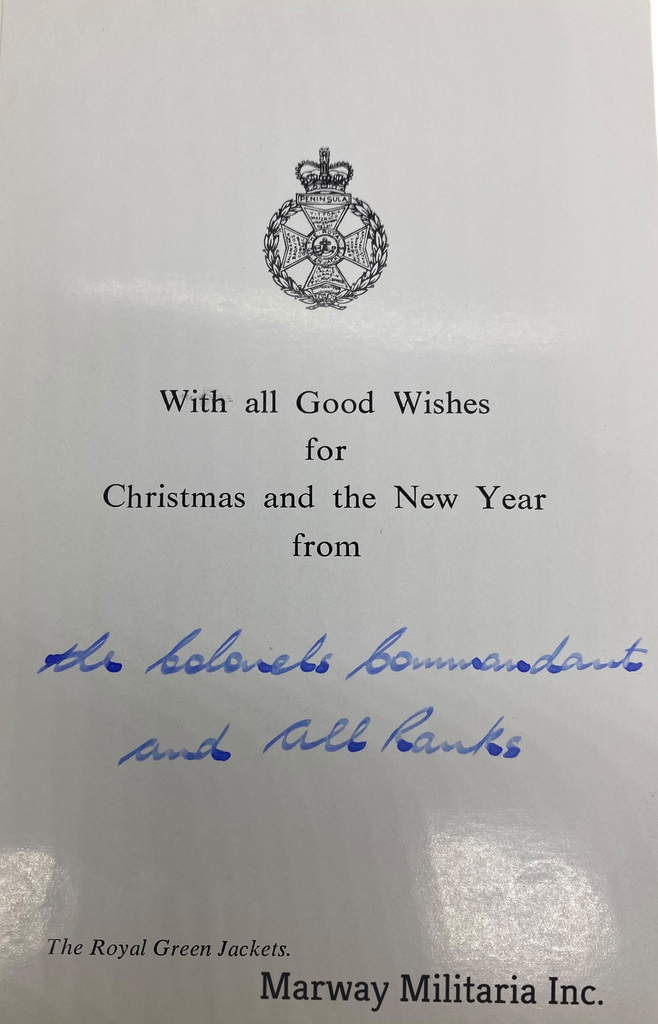 PENINSULA
With all Good Wishes
for
Christmas and the New Year
from
the Colonels Commandant
and All Ranks
The Royal Green Jackets.
Marway Militaria Inc.